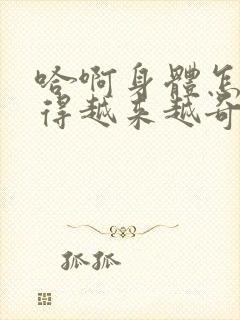 哈啊身體怎
得越来越奇
狐狐